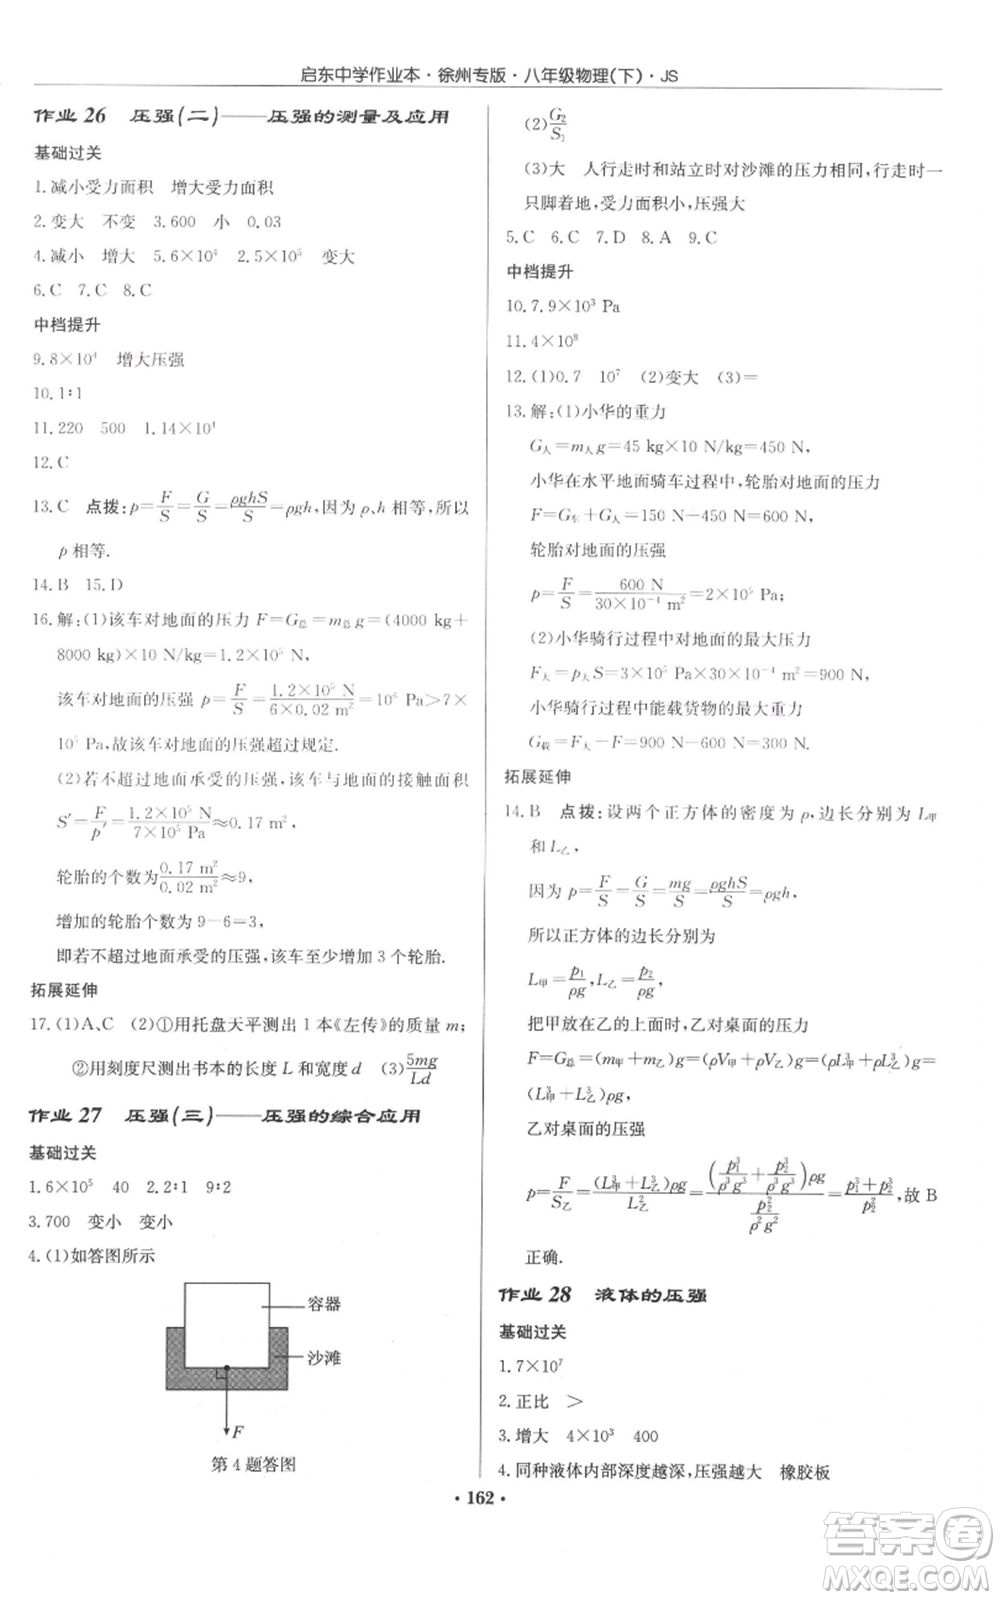 启东中学作业本·徐州专版·八年级物理(下)·JS
作业 26 压强(二)——压强的测量及应用
基础过关
1.减小受力面积 增大受力面积
2.变大 不变 3.600 小 0.03
4.减小 增大 5.6×10⁴ 2.5×10⁵ 变大
6.C 7.C 8.C
中档提升
9.8×10⁴ 增大压强
10.1∶1
11.220 500 1.14×10⁴
12.C
13.C 点拨:p=F/S=G/S=ρghS/S=ρgh,因为 ρ、h 相等,所以
p 相等.
14.B 15.D
16.解:(1)该车对地面的压力 F=G总=m总g=(4000 kg+
8000 kg)×10 N/kg=1.2×10⁵ N,
该车对地面的压强 p=F/S=1.2×10⁵ N/6×0.02 m²=10⁶ Pa>7×
10⁵ Pa,故该车对地面的压强超过规定.
(2)若不超过地面承受的压强,该车与地面的接触面积
S′=F/p′=1.2×10⁵ N/7×10⁵ Pa≈0.17 m²,
轮胎的个数为0.17 m²/0.02 m²≈9,
增加的轮胎个数为 9-6=3,
即若不超过地面承受的压强,该车至少增加 3 个轮胎.
拓展延伸
17.(1)A、C (2)①用托盘天平测出 1 本《左传》的质量 m;
②用刻度尺测出书本的长度 L 和宽度 d (3)5mg/Ld
作业 27 压强(三)——压强的综合应用
基础过关
1.6×10⁵ 40 2.2∶1 9∶2
3.700 变小 变小
4.(1)如答图所示
容器
沙滩
F
第 4 题答图
(2)G₂/S₁
(3)大 人行走时和站立时对沙滩的压力相同,行走时一
只脚着地,受力面积小,压强大
5.C 6.C 7.D 8.A 9.C
中档提升
10.7.9×10³ Pa
11.4×10⁸
12.(1)0.7 10⁷ (2)变大 (3)=
13.解:(1)小华的重力
G人=m人g=45 kg×10 N/kg=450 N,
小华在水平地面骑车过程中,对地面的压力
F=G车+G人=150 N-450 N=600 N,
轮胎对地面的压强
p=F/S=600 N/30×10⁻⁴ m²=2×10⁵ Pa;
(2)小华骑行过程中对地面的最大压力
F大=p大S=3×10⁵ Pa×30×10⁻⁴ m²=900 N,
小华骑行过程中能载货物的最大重力
G载=F大-F=900 N-600 N=300 N.
拓展延伸
14.B 点拨:设两个正方体的密度为 ρ,边长分别为 L甲
和 L乙,
因为 p=F/S=G/S=mg/S=ρghS/S=ρgh,
所以正方体的边长分别为
L甲=p₁/ρg,L乙=p₂/ρg,
把甲放在乙的上面时,乙对桌面的压力
F=G总=(m甲+m乙)g=(ρV甲+ρV乙)g=(ρL³甲+
ρL³乙)g=(L³甲+L³乙)ρg,
乙对桌面的压强
p=F/S乙=(L³甲+L³乙)ρg/L²乙=(p₁³/ρ³g³+p₂³/ρ³g³)ρg/(p₂²/ρ²g²)=p₁³+p₂³/p₂²,故 B
正确.
作业 28 液体的压强
基础过关
1.7×10⁷
2.正比 >
3.增大 4×10³ 400
4.同种液体内部深度越深,压强越大 橡胶板
·162·
答案卷
MXQE.COM